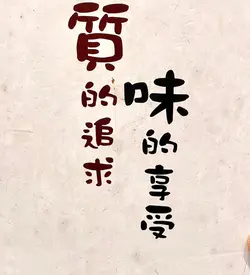 質的追求
味的享受